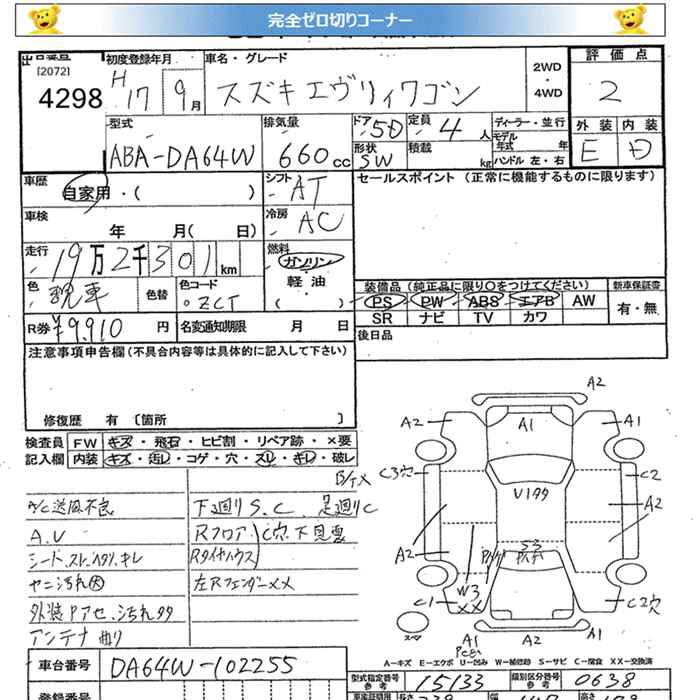 完全ゼロ切りコーナー
[2072]
4298
初度登録年月
H17 9月
車名・グレード
スズキ エヴリィワゴン
2WD
4WD
評価点
2
外装 内装
E D
型式
ABA-DA64W
排気量
660cc
ドア 5D
定員 4人
形状 SW
積載 kg
ディーラー・並行
モデル年式 年
ハンドル 左・右
車歴
自家用・( )
シフト AT
セールスポイント (正常に機能するものに限ります)
車検 年 月( 日)
冷房 AC
走行 19万2千301km
燃料
ガソリン
軽油
( )
色 銀車
色替
色コード
ZCT
装備品 (純正品に限り〇をつけてください)
新車保証書
PS PW ABS エアB AW
有・無
SR ナビ TV カワ
R券 ¥9.910円
名変通知期限 月 日
後日品
注意事項申告欄 (不具合内容等は具体的に記入して下さい)
修復歴 有 〔箇所 〕
検査員記入欄
FW キズ・飛石・ヒビ割・リペア跡・×要
内装 キズ・汚レ・コゲ・穴・スレ・キレ・破レ
A/C送風不良
A.V
シートスレ.ヘタリ.キレ
ヤニ汚れ大
外装Pアセ.汚れタタ
アンテナ曲り
下廻りS.C 足廻りC
Rフロア C穴下見要
Rタイヤハウス
左RフェンダーXX
B/TX
A2
A2 A1 A1
C3穴 C2
A2
A2
W3
XX
C1 C2穴
スマ
A1 A2 A1
A-キズ E-エクボ U-凹み W-補修跡 S-サビ C-腐食 XX-交換済
車台番号 DA64W-102255
型式指定番号 参考 15133
類別区分番号 参考 0638
登録番号